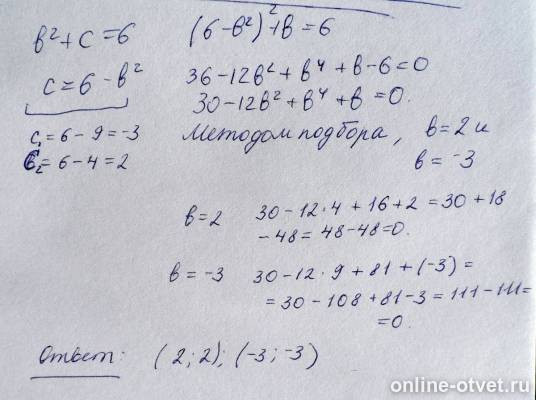 в²+с=6
(6-в²)²+в=6
с=6-в²
36-12в²+в⁴+в-6=0
30-12в²+в⁴+в=0.
с₁=6-9=-3
с₂=6-4=2
Методом подбора, в=2 и
в=-3
в=2 30-12·4+16+2=30+18
-48=48-48=0.
в=-3 30-12·9+81+(-3)=
=30-108+81-3=111-111=
=0.
Ответ: (2;2); (-3;-3)
online-otvet.ru